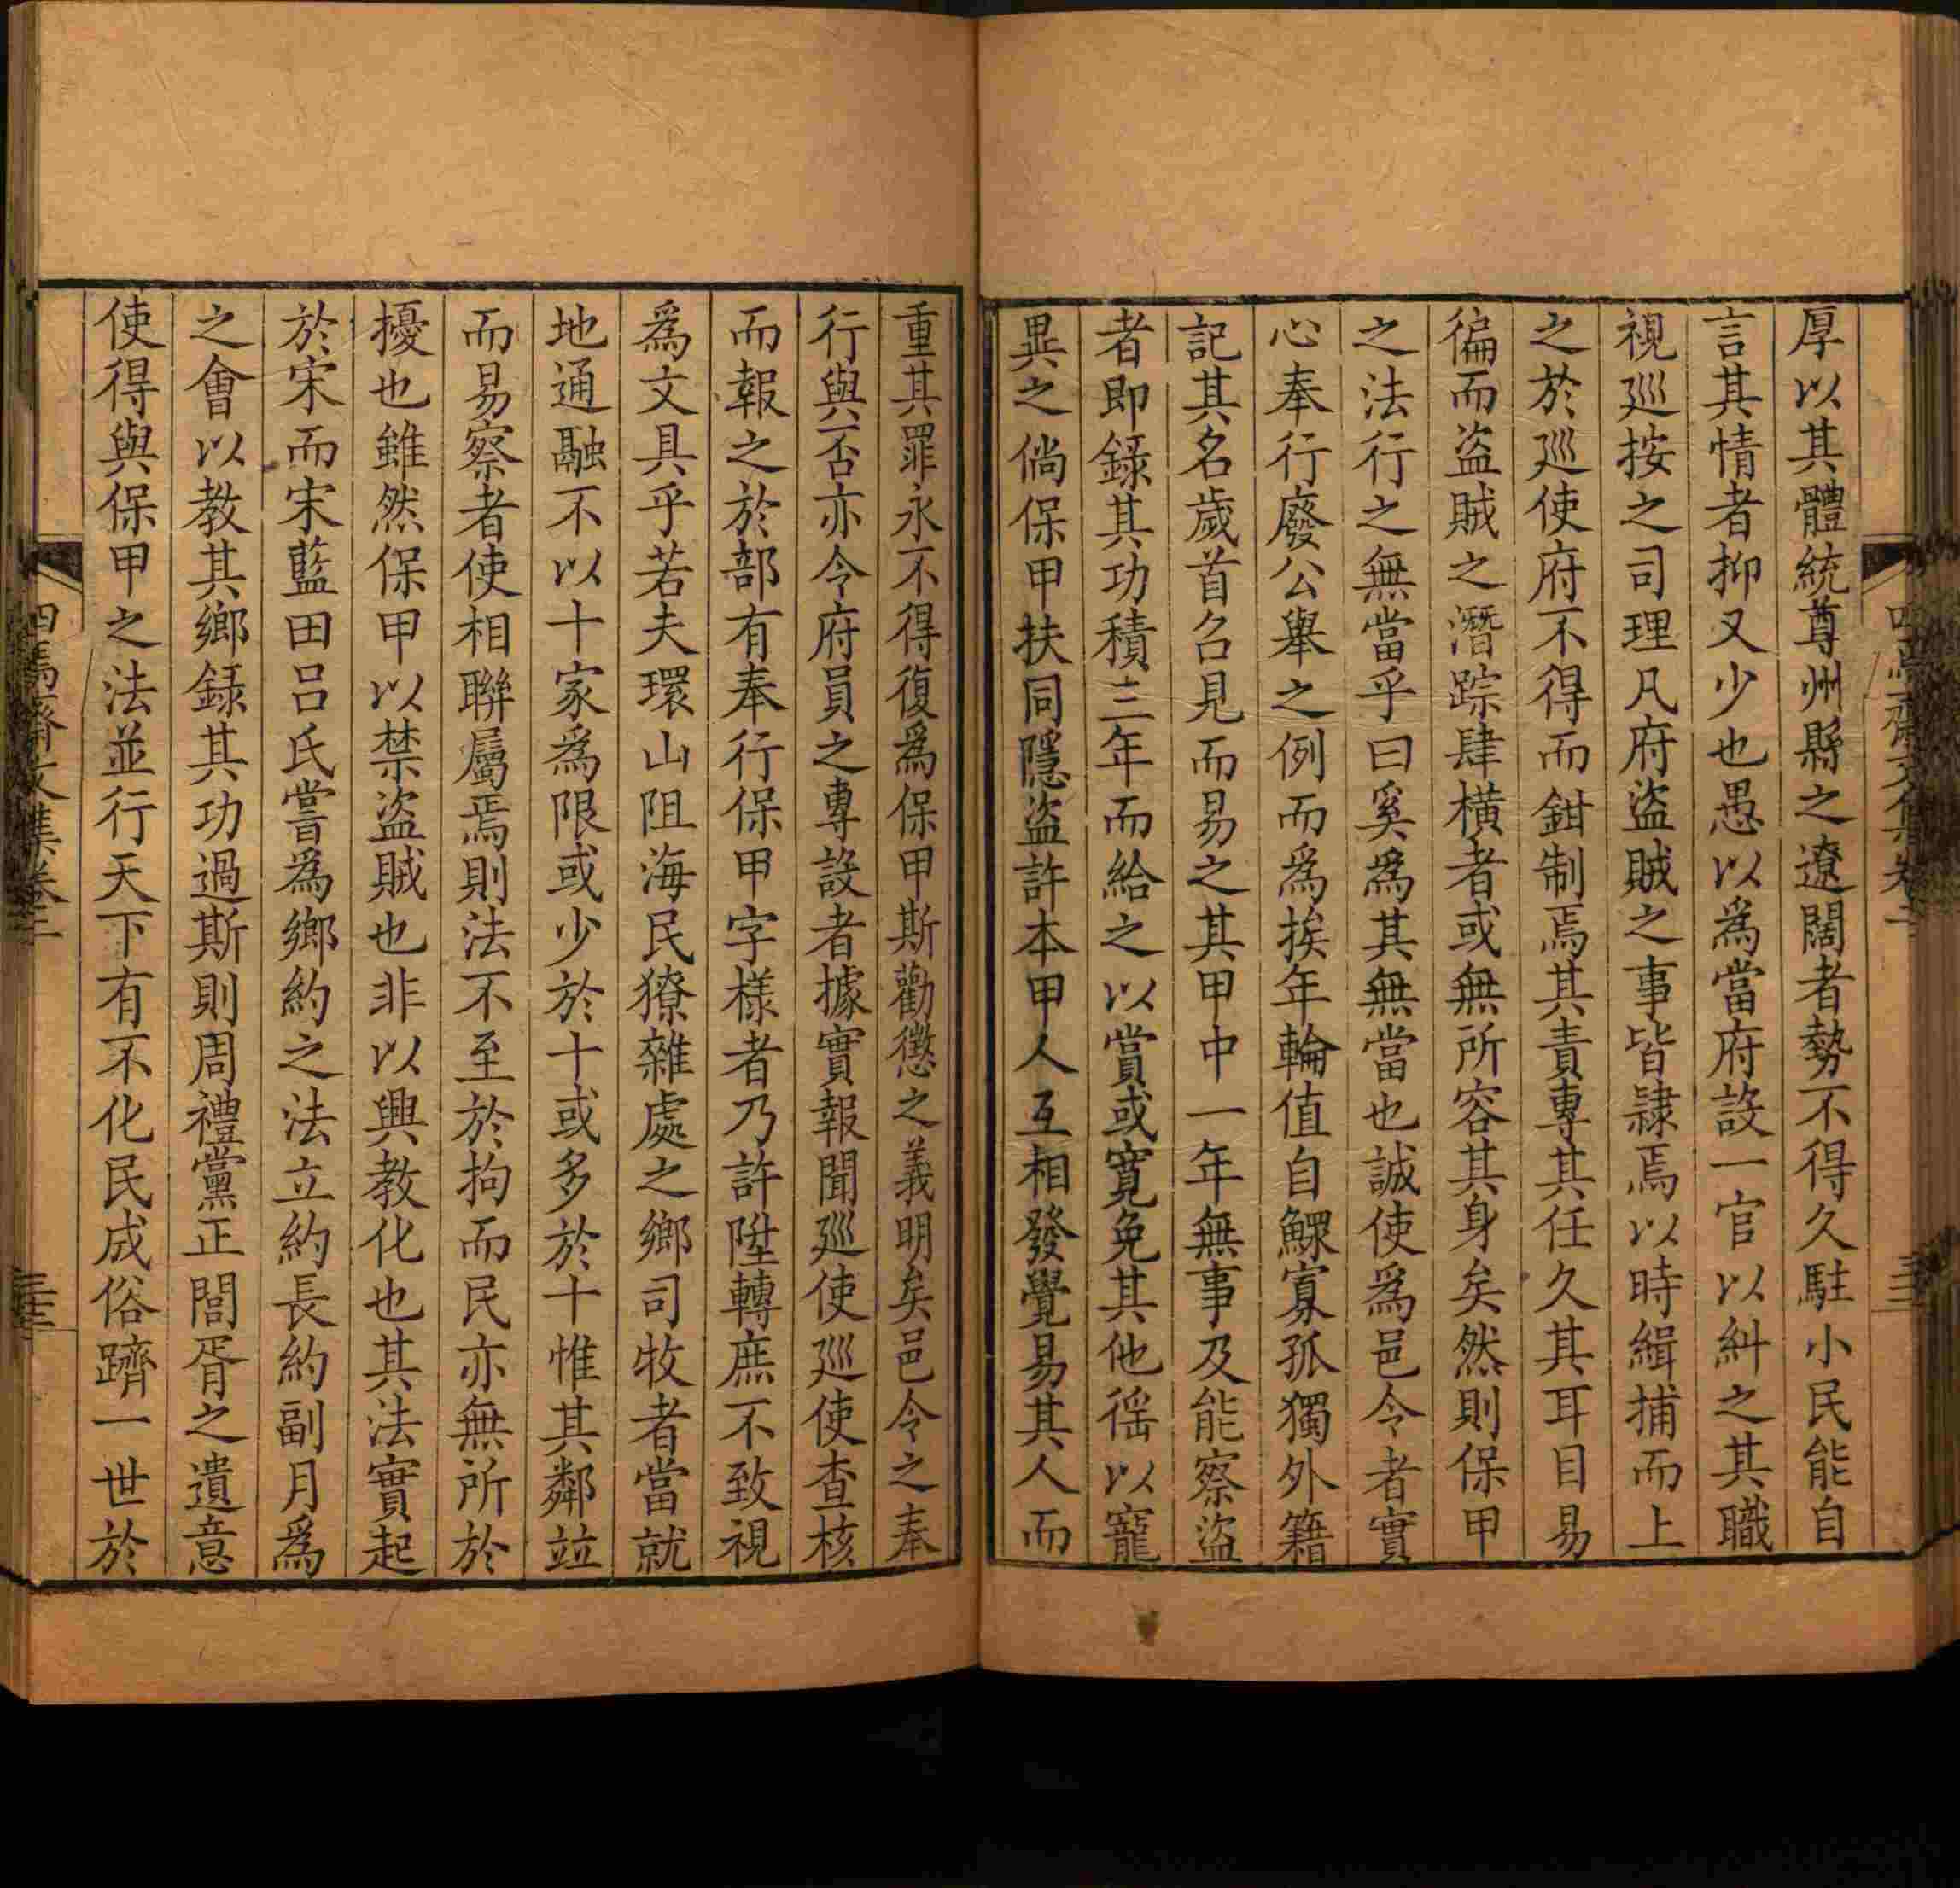 厚以其體統尊州縣之遼闊者勢不得久駐小民能自
言其情者抑又少也愚以爲當府設一官以糾之其職
視廵按之司理凡府盜賊之事皆隸焉以時緝捕而上
之於廵使府不得而鉗制焉其責專其任久其耳目易
徧而盜賊之潛踪肆橫者或無所容其身矣然則保甲
之法行之無當乎曰奚爲其無當也誠使爲邑令者實
心奉行廢公舉之例而爲挨年輪值自鰥寡孤獨外籍
記其名歲首召見而易之其甲中一年無事及能察盜
者即錄其功積三年而給之以賞或寬免其他徭以寵
異之倘保甲扶同隱盜許本甲人互相發覺易其人而
重其罪永不得復爲保甲斯勸懲之義明矣邑令之奉
行與否亦令府員之專設者據實報聞廵使廵使查核
而報之於部有奉行保甲字樣者乃許陞轉庶不致視
爲文具乎若夫環山阻海民獠雜處之鄉司牧者當就
地通融不以十家爲限或少於十或多於十惟其鄰並
而易察者使相聯屬焉則法不至於拘而民亦無所於
擾也雖然保甲以禁盜賊也非以興教化也其法實起
於宋而宋藍田呂氏嘗爲鄉約之法立約長約副月爲
之會以教其鄉録其功過斯則周禮黨正閭胥之遺意
使得與保甲之法並行天下有不化民成俗躋一世於
四焉齋文集卷二